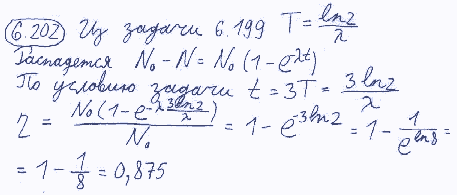 6.202 Из задачи 6.199 T = ln2/λ
Распадется N₀ - N = N₀ (1 - e^(-λt))
По условию задачи t = 3T = 3ln2/λ
η = N₀(1 - e^(-λ 3ln2/λ))/N₀ = 1 - e^(-3ln2) = 1 - 1/e^(ln8) =
= 1 - 1/8 = 0,875